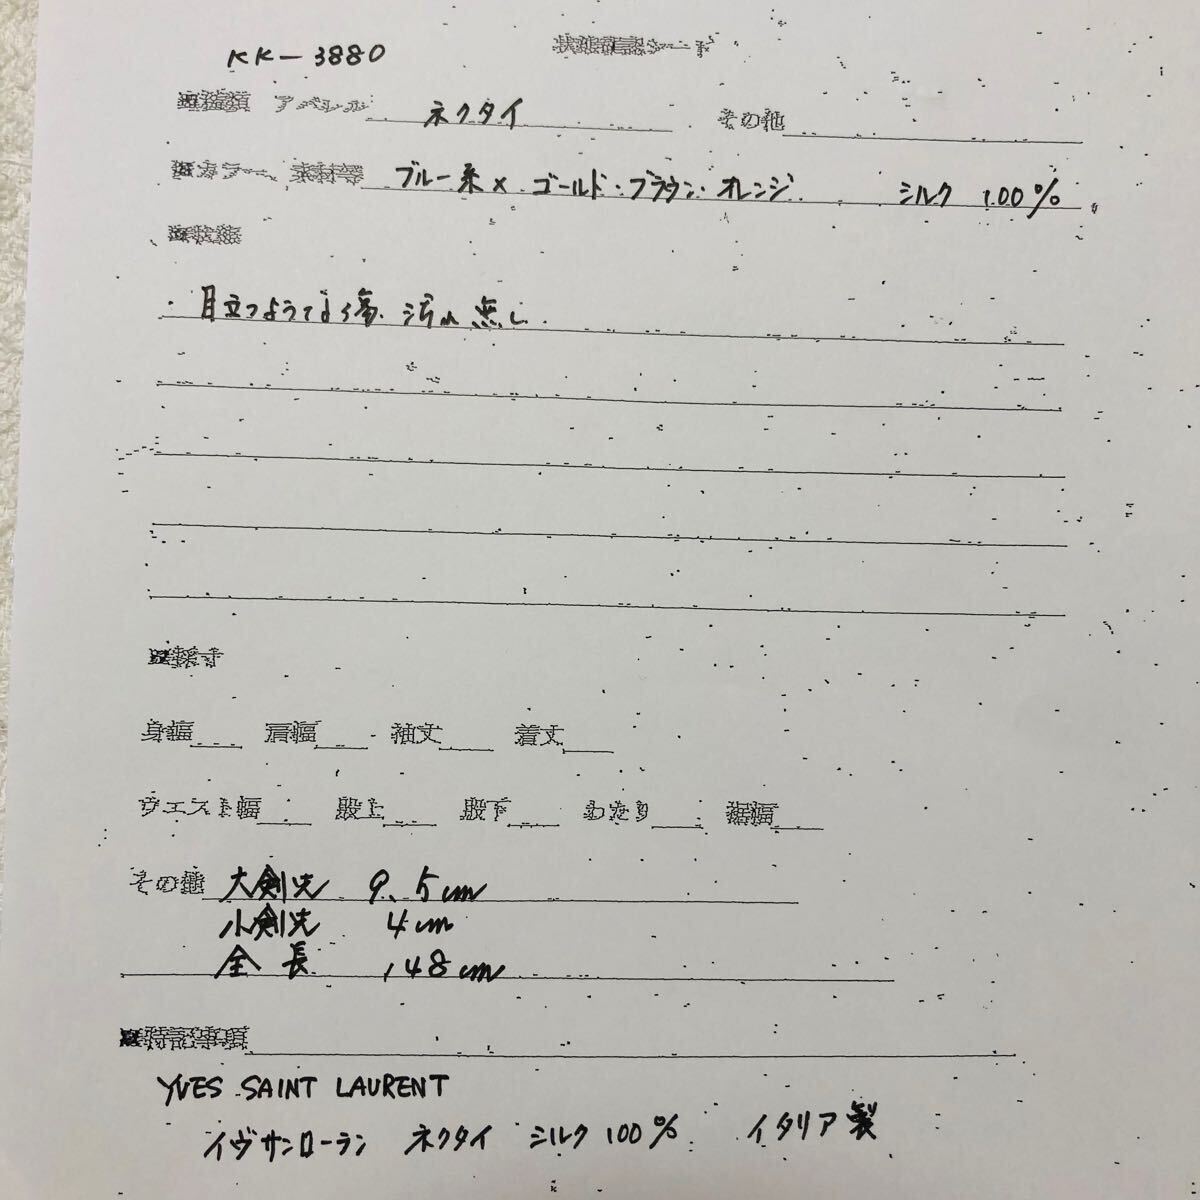 KK-3880
状態確認シート
■種類 アパレル ネクタイ その他
■カラー、素材等 ブルー系×ゴールド・ブラウン・オレンジ シルク 100%
■状態
・目立つようなキズ、汚れ無し
■採寸
身幅 肩幅 袖丈 着丈
ウエスト幅 股上 股下 わたり 裾幅
その他 大剣先 9.5cm
小剣先 4cm
全長 148cm
■特記事項
YVES SAINT LAURENT
イヴサンローラン ネクタイ シルク100% イタリア製